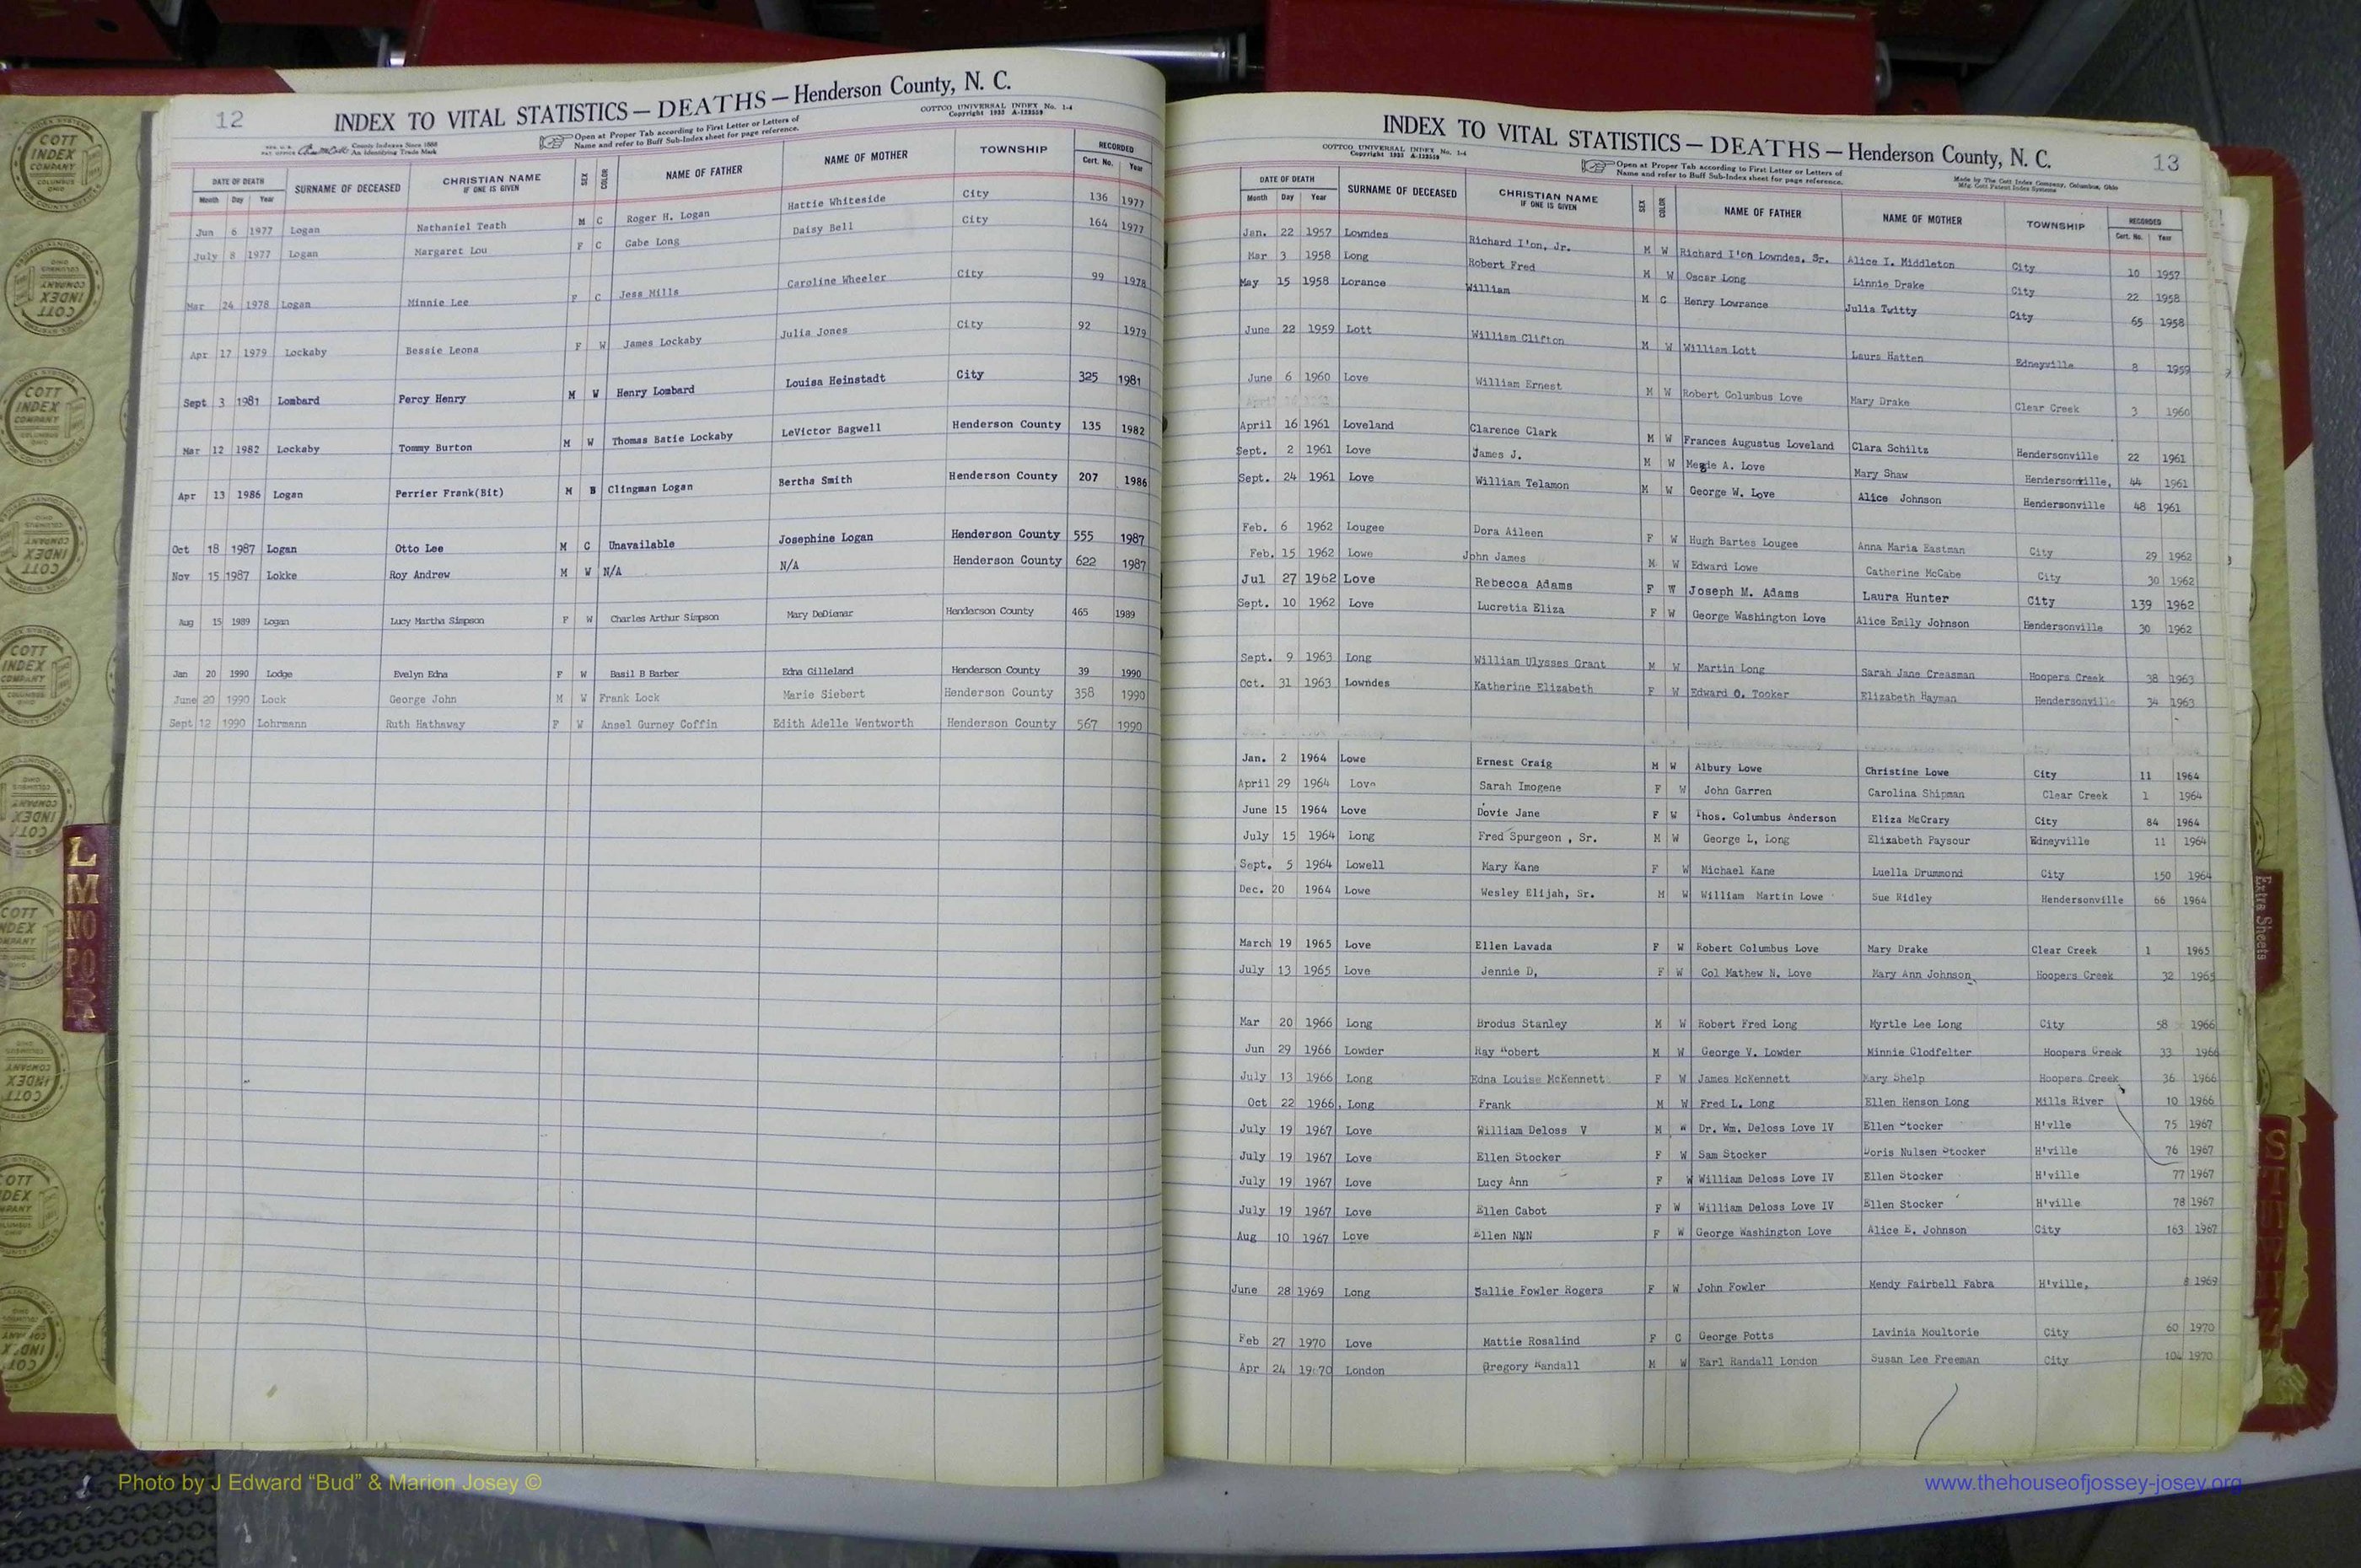 12
INDEX TO VITAL STATISTICS — DEATHS — Henderson County, N. C.
COTTCO UNIVERSAL INDEX No. 1-4
Open at Proper Tab according to First Letter or Letters of
Name and refer to Buff Sub-Index sheet for page reference.
County Indexes Since 1888
An Identifying Trade Mark
DATE OF DEATH SURNAME OF DECEASED CHRISTIAN NAME IF ONE IS GIVEN SEX COLOR NAME OF FATHER NAME OF MOTHER TOWNSHIP RECORDED
Month Day Year Cert. No. Year
Jun 6 1977 Logan Nathaniel Teath M C Roger H. Logan Hattie Whiteside City 136 1977
July 8 1977 Logan Margaret Lou F C Gabe Long Daisy Bell City 164 1977
Mar 24 1978 Logan Minnie Lee F C Jess Mills Caroline Wheeler City 99 1978
Apr 17 1979 Lockaby Bessie Leona F W James Lockaby Julia Jones City 92 1979
Sept 3 1981 Lombard Percy Henry M W Henry Lombard Louisa Heinstadt City 325 1981
Mar 12 1982 Lockaby Tommy Burton M W Thomas Batie Lockaby LeVictor Bagwell Henderson County 135 1982
Apr 13 1986 Logan Perrier Frank(Bit) M B Clingman Logan Bertha Smith Henderson County 207 1986
Oct 18 1987 Logan Otto Lee M C Unavailable Josephine Logan Henderson County 555 1987
Nov 15 1987 Lokke Roy Andrew M W N/A N/A Henderson County 622 1987
Aug 15 1989 Logan Lucy Martha Simpson F W Charles Arthur Simpson Mary DeDiemar Henderson County 465 1989
Jan 20 1990 Lodge Evelyn Edna F W Basil B Barber Edna Gilleland Henderson County 39 1990
June 20 1990 Lock George John M W Frank Lock Marie Siebert Henderson County 358 1990
Sept 12 1990 Lohrmann Ruth Hathaway F W Ansel Gurney Coffin Edith Adelle Wentworth Henderson County 567 1990
INDEX TO VITAL STATISTICS — DEATHS — Henderson County, N. C.
13
COTTCO UNIVERSAL INDEX No. 1-4
Open at Proper Tab according to First Letter or Letters of
Name and refer to Buff Sub-Index sheet for page reference.
Made by The Cott Index Company, Columbus, Ohio
DATE OF DEATH SURNAME OF DECEASED CHRISTIAN NAME IF ONE IS GIVEN SEX COLOR NAME OF FATHER NAME OF MOTHER TOWNSHIP RECORDED
Month Day Year Cert. No. Year
Jan. 22 1957 Lowndes Richard I'on, Jr. M W Richard I'on Lowndes, Sr. Alice I. Middleton City 10 1957
Mar 3 1958 Long Robert Fred M W Oscar Long Linnie Drake City 22 1958
May 15 1958 Lorance William M C Henry Lowrance Julia Twitty City 65 1958
June 22 1959 Lott William Clifton M W William Lott Laura Hatten Edneyville 8 1959
June 6 1960 Love William Ernest M W Robert Columbus Love Mary Drake Clear Creek 3 1960
April 16 1961 Loveland Clarence Clark M W Frances Augustus Loveland Clara Schiltz Hendersonville 22 1961
Sept. 2 1961 Love James J. M W Megie A. Love Mary Shaw Hendersonville, 44 1961
Sept. 24 1961 Love William Telamon M W George W. Love Alice Johnson Hendersonville 48 1961
Feb. 6 1962 Lougee Dora Aileen F W Hugh Bartes Lougee Anna Maria Eastman City 29 1962
Feb. 15 1962 Lowe John James M W Edward Lowe Catherine McCabe City 30 1962
Jul 27 1962 Love Rebecca Adams F W Joseph M. Adams Laura Hunter City 139 1962
Sept. 10 1962 Love Lucretia Eliza F W George Washington Love Alice Emily Johnson Hendersonville 30 1962
Sept. 9 1963 Long William Ulysses Grant M W Martin Long Sarah Jane Creasman Hoopers Creek 38 1963
Oct. 31 1963 Lowndes Katherine Elizabeth F W Edward O. Tooker Elizabeth Hayman Hendersonville 34 1963
Jan. 2 1964 Lowe Ernest Craig M W Albury Lowe Christine Lowe City 11 1964
April 29 1964 Love Sarah Imogene F W John Garren Carolina Shipman Clear Creek 1 1964
June 15 1964 Love Dovie Jane F W Thos. Columbus Anderson Eliza McCrary City 84 1964
July 15 1964 Long Fred Spurgeon , Sr. M W George L, Long Elizabeth Paysour Edneyville 11 1964
Sept. 5 1964 Lowell Mary Kane F W Michael Kane Luella Drummond City 150 1964
Dec. 20 1964 Lowe Wesley Elijah, Sr. M W William Martin Lowe Sue Ridley Hendersonville 66 1964
March 19 1965 Love Ellen Lavada F W Robert Columbus Love Mary Drake Clear Creek 1 1965
July 13 1965 Love Jennie D, F W Col Mathew N. Love Mary Ann Johnson Hoopers Creek 32 1965
Mar 20 1966 Long Brodus Stanley M W Robert Fred Long Myrtle Lee Long City 58 1966
Jun 29 1966 Lowder Ray Robert M W George V. Lowder Minnie Clodfelter Hoopers Creek 33 1966
July 13 1966 Long Edna Louise McKennett F W James McKennett Mary Shelp Hoopers Creek 36 1966
Oct 22 1966, Long Frank M W Fred L. Long Ellen Henson Long Mills River 10 1966
July 19 1967 Love William Deloss V M W Dr. Wm. Deloss Love IV Ellen Stocker H'vlle 75 1967
July 19 1967 Love Ellen Stocker F W Sam Stocker Doris Nulsen Stocker H'ville 76 1967
July 19 1967 Love Lucy Ann F W William Deloss Love IV Ellen Stocker H'ville 77 1967
July 19 1967 Love Ellen Cabot F W William Deloss Love IV Ellen Stocker H'ville 78 1967
Aug 10 1967 Love Ellen NMN F W George Washington Love Alice E. Johnson City 163 1967
June 28 1969 Long Sallie Fowler Rogers F W John Fowler Mendy Fairbell Fabra H'ville, 8 1969
Feb 27 1970 Love Mattie Rosalind F C George Potts Lavinia Moultorie City 60 1970
Apr 24 1970 London Gregory Randall M W Earl Randall London Susan Lee Freeman City 104 1970
L
M
NO
PQ
R
Extra Sheets
COTT INDEX COMPANY COLUMBUS OHIO
Photo by J Edward “Bud” & Marion Josey ©
www.thehouseofjossey-josey.org